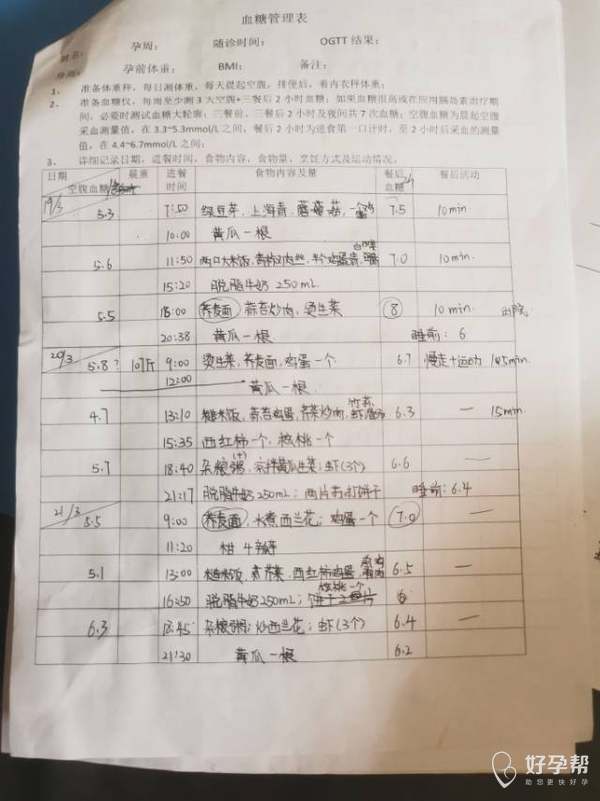 血糖管理表
姓名: 孕周: 随诊时间: OGTT 结果:
身高: 孕前体重: BMI: 备注:
1、 准备体重秤，每日测体重，每天晨起空腹，排便后，着内衣秤体重；
2、 准备血糖仪，每周至少测3天空腹+三餐后2小时血糖；如果血糖很高或在应用胰岛素治疗期
间，必要时测试血糖大轮廓：三餐前，三餐后2小时及夜间共7次血糖；空腹血糖为晨起空腹
采血测量值，在 3.3~5.3mmol/L 之间，餐后2小时为进食第一口计时，至2小时后采血的测量
值，在 4.4~6.7mmol/L 之间；
3、 详细记录日期，进餐时间，食物内容，食物量，烹饪方式及运动情况。
日期 空腹血糖 晨重 进餐时间 食物内容及量 餐后血糖 2h 餐后活动
19/3 5.3 7:50 绿豆芽、上海青、蘑菇、一个鸡蛋 7.5 10min
10:00 黄瓜一根
5.6 11:50 两口大米饭、青椒炒肉丝、半个鸡蛋 7.0 10min
15:20 脱脂牛奶 250mL
5.5 18:00 荞麦面、蒜苔炒肉、烫生菜 8 10min
20:38 黄瓜一根 睡前：6
20/3 5.8? 107斤 9:00 烫生菜、荞麦面、鸡蛋一个 6.7 慢走+运动
12:00 黄瓜一根
4.7 13:10 糙米饭、蒜苔鸡蛋、芹菜炒肉、 6.3 — 15min
15:35 西红柿一个、核桃一个
5.7 18:40 杂粮粥、凉拌黄瓜生菜；虾(3个) 6.6 —
21:17 脱脂牛奶250mL；两片苏打饼干 睡前：6.4
21/3 5.5 9:00 荞麦面、水煮西兰花；鸡蛋一个 7.0 —
11:20 柑 4瓣
5.1 13:00 糙米饭、西红柿鸡蛋、 6.5 —
16:50 脱脂牛奶250mL；核桃一个 6
6.3 18:45 杂粮粥；炒西兰花；虾(3个) 6.4 —
21:30 黄瓜一根 6.2
好孕帮
助您更快好孕